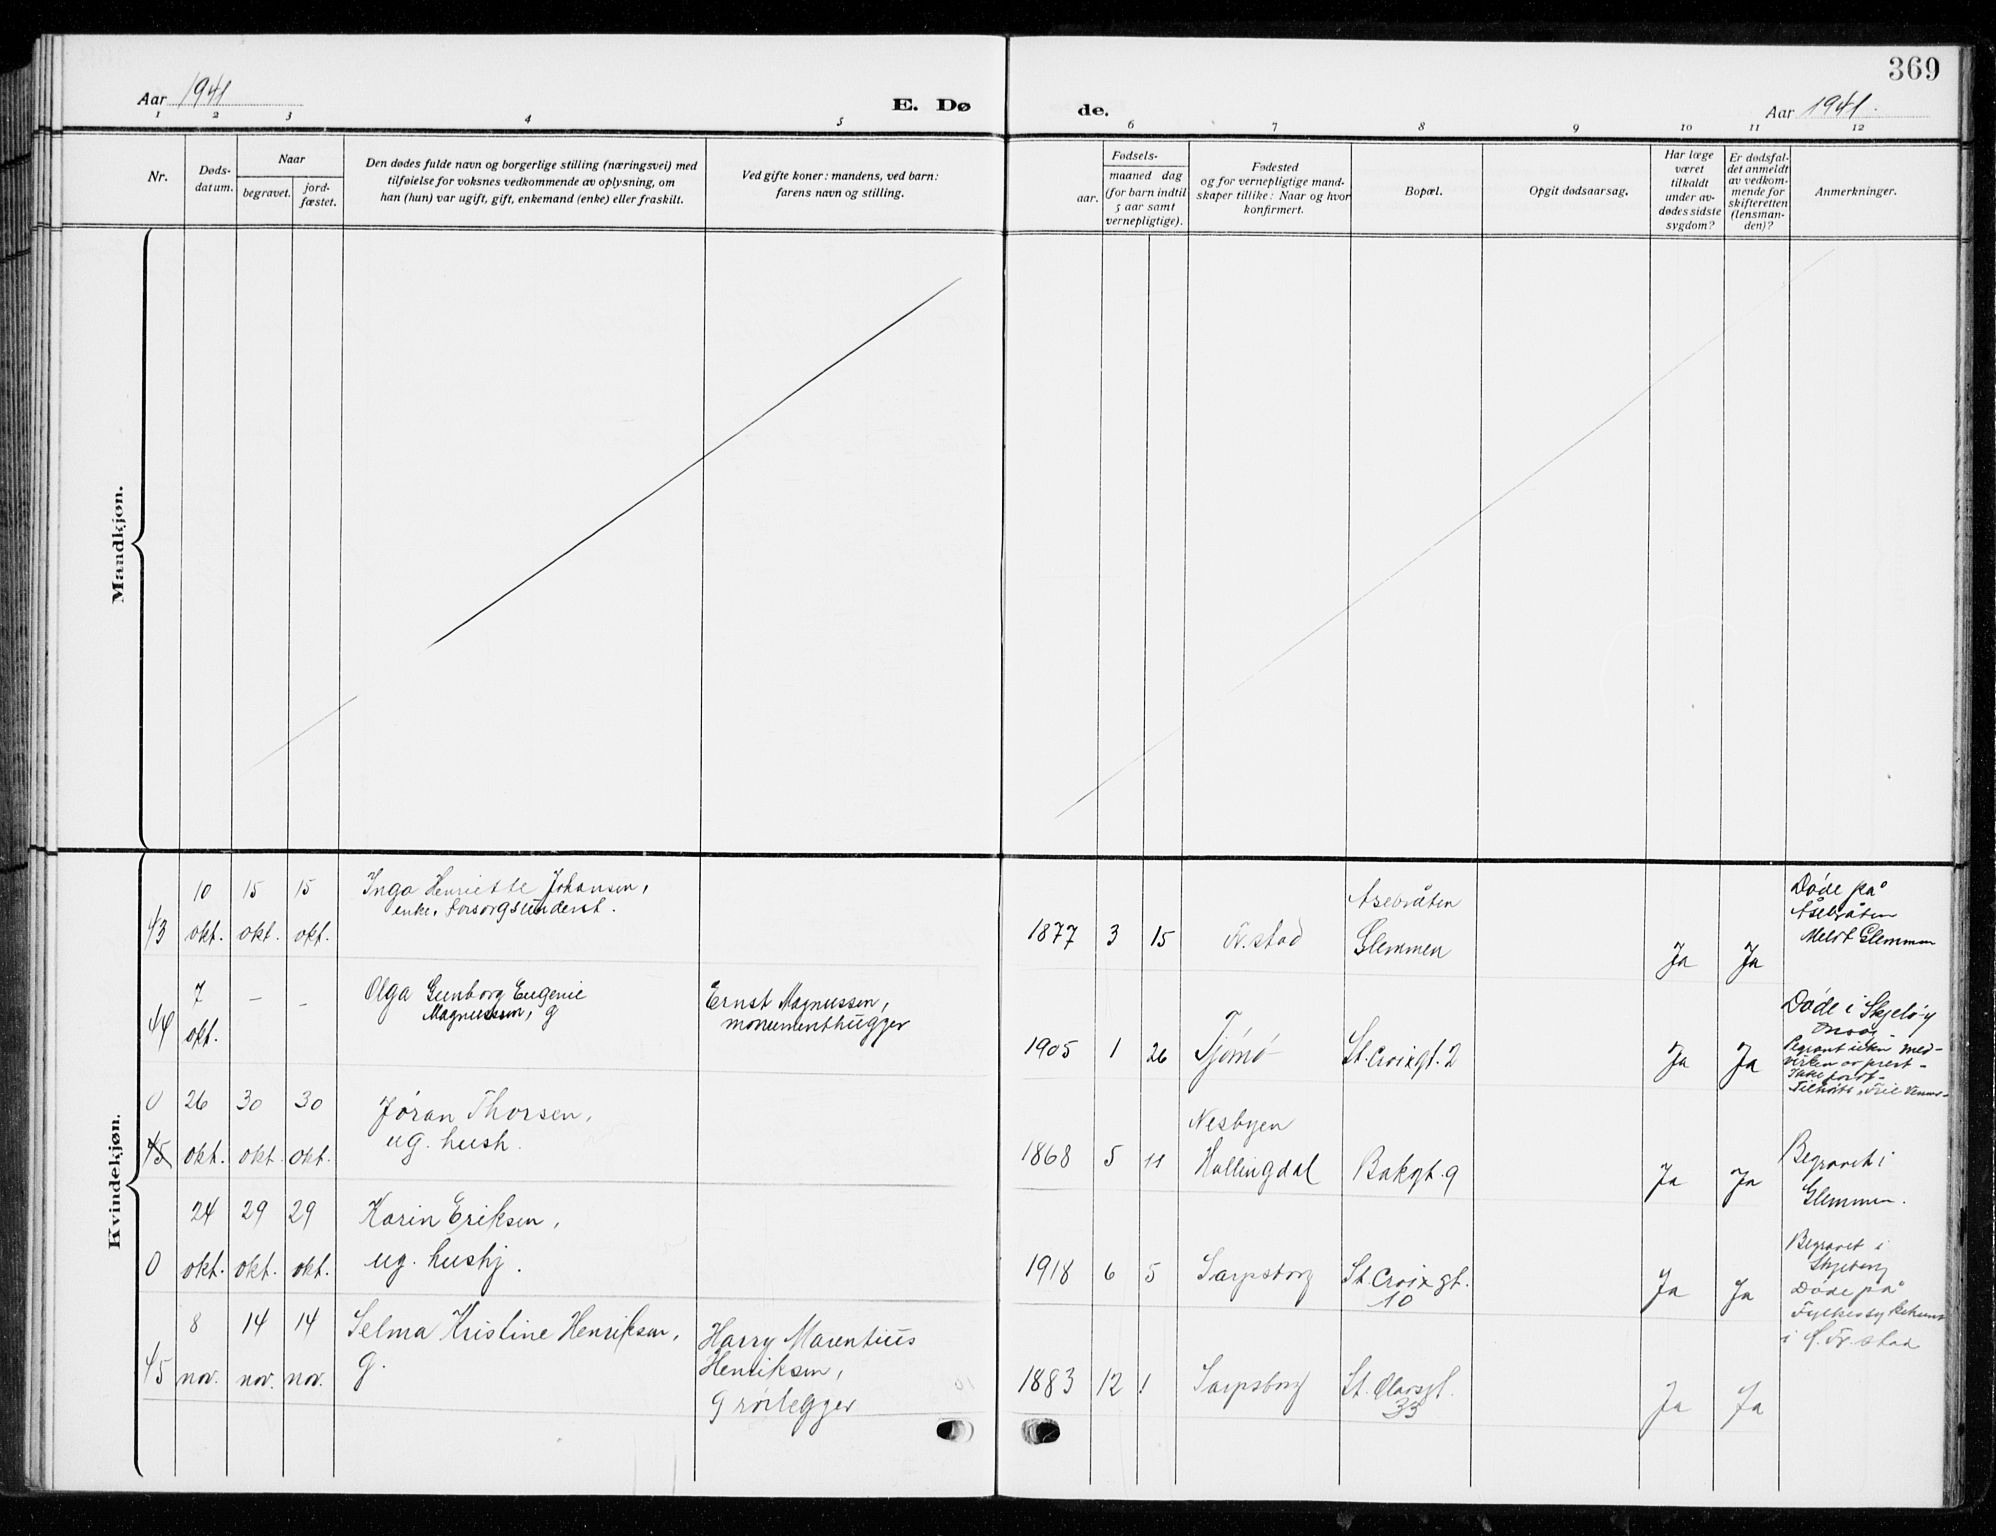 369
Aar 1941
E. Dø
de.
Aar 1941.
1 2 3 4 5 6 7 8 9 10 11 12
Nr.
Døds-
datum.
Naar
begravet.
jord-
fæstet.
Den dødes fulde navn og borgerlige stilling (næringsvei) med
tilføielse for voksnes vedkommende av oplysning, om
han (hun) var ugift, gift, enkemand (enke) eller fraskilt.
Ved gifte koner: mandens, ved barn:
farens navn og stilling.
Fødsels-
aar.
maaned dag
(for barn indtil
5 aar samt
vernepligtige).
Fødested
og for vernepligtige mand-
skaper tillike: Naar og hvor
konfirmert.
Bopæl.
Opgit dødsaarsag.
Har læge
været
tilkaldt
under av-
dødes sidste
sygdom?
Er dødsfal-
det anmeldt
av vedkom-
mende for
skifteretten
(lensman-
den)?
Anmerkninger.
Mandkjøn.
Kvindekjøn.
43
10
okt.
15
okt.
15
okt.
Inga Henriette Johansen,
enke, forsorgsunderst.
1877 3 15
Fr.stad
Asebråten
Glemmen
Ja
Ja
Døde på
Åsebråten
Meldt Glemmen
44
7
okt.
–
–
Olga Gunborg Eugenie
Magnussen, g
Ernst Magnussen,
monumenthugger
1905 1 26
Tjømø
St. Croixgt. 2
Ja
Ja
Døde i Skjeløy
Onsøy
Begravet uten med-
virken av prest –
Ikke jordf. –
0
45
26
okt.
30
okt.
30
okt.
Jøran Thorsen,
ug. hush.
1868 5 11
Nesbyen
Hallingdal
Bakgt. 9
Ja
Ja
Begravet i
Glemmen.
0
24
okt.
29
okt.
29
okt.
Karin Eriksen,
ug. hushj.
1918 6 5
Sarpsborg
St. Croix gt.
10
Ja
Ja
Begravet i
Skjeberg
Døde på
Fylkessykehuset
i Fr.stad
45
8
nov.
14
nov.
14
nov.
Selma Kristine Henriksen,
g.
Harry Marentius
Henriksen,
rørlegger
1883 12 1
Sarpsborg
St. Olavsgt.
33
Ja
Ja